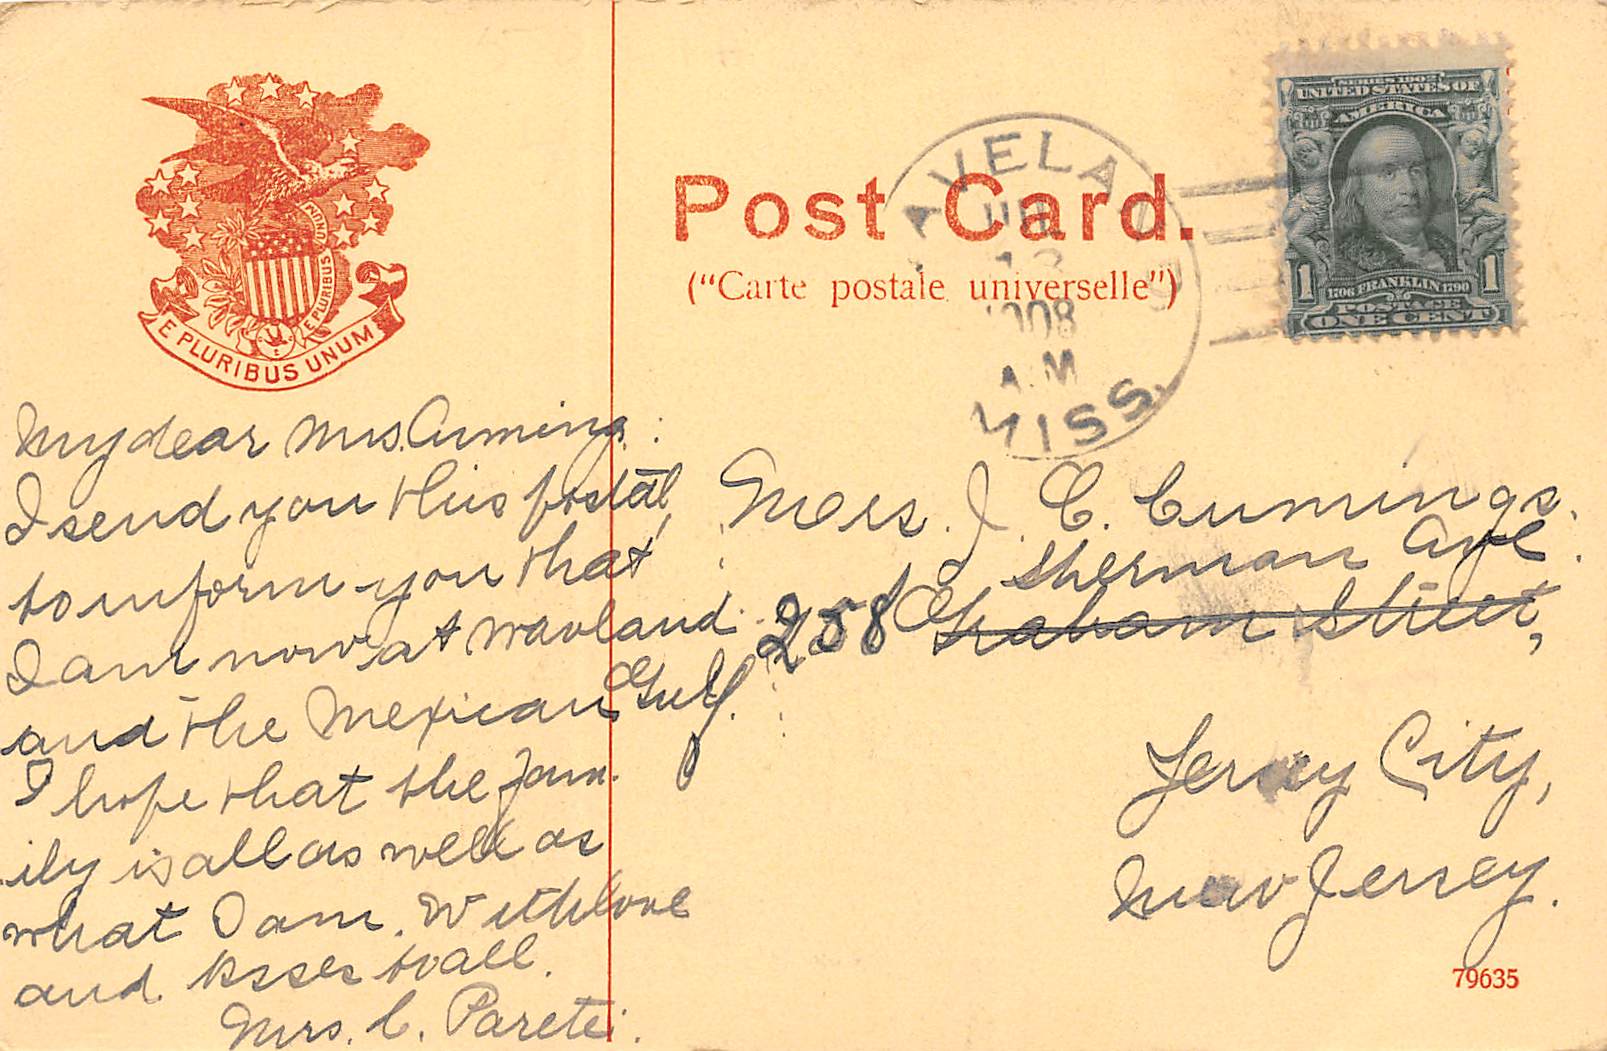 E PLURIBUS UNUM
E PLURIBUS UNUM
Post Card.
("Carte postale universelle")
WAVELAND
JUL
13
1908
A.M
MISS.
SERIES 1902
UNITED STATES OF
AMERICA
1 1
1706 FRANKLIN 1790
POSTAGE
ONE CENT
My dear Mrs. Cuming:
I send you this postal
to inform you that
I am now at Waveland
and the Mexican Gulf.
I hope that the fam-
ily is all as well as
what I am. With love
and kisses to all.
Mrs. C. Paretti.
Mrs. J. C. Cumings.
Sherman Ave.
258 Graham Street,
Jersey City,
New Jersey.
79635